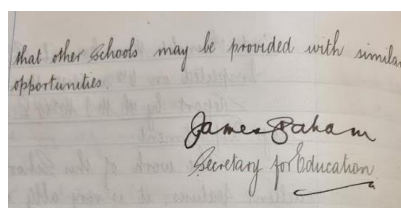 that other Schools may be provided with similar
opportunities.
James Paham
Secretary for Education